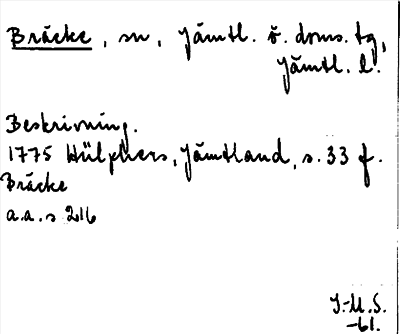 Bräcke, sn, Jämtl. ö. doms. tg,
Jämtl. l.
Beskrivning.
1775 Hülphers, Jämtland, s. 33 f.
Bräcke
a.a. s 216
J.-M.S.
-61.